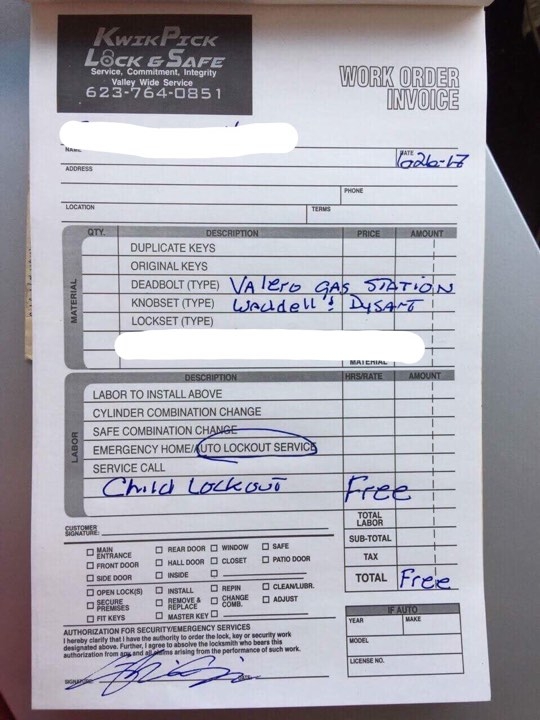 KwikPick
Lock & Safe
Service, Commitment, Integrity
Valley Wide Service
623-764-0851
WORK ORDER
INVOICE
NAME
DATE
ADDRESS
PHONE
LOCATION TERMS
QTY. DESCRIPTION PRICE AMOUNT
MATERIAL
DUPLICATE KEYS
ORIGINAL KEYS
DEADBOLT (TYPE) Valero GAS STATION
KNOBSET (TYPE) Waddell & DYSART
LOCKSET (TYPE)
MATERIAL
DESCRIPTION HRS/RATE AMOUNT
LABOR
LABOR TO INSTALL ABOVE
CYLINDER COMBINATION CHANGE
SAFE COMBINATION CHANGE
EMERGENCY HOME/AUTO LOCKOUT SERVICE
SERVICE CALL
Child Lockout Free
CUSTOMER
SIGNATURE:
TOTAL
LABOR
SUB-TOTAL
TAX
TOTAL Free
MAIN
ENTRANCE
REAR DOOR WINDOW SAFE
FRONT DOOR HALL DOOR CLOSET PATIO DOOR
SIDE DOOR INSIDE
OPEN LOCK(S) INSTALL REPIN CLEAN/LUBR.
SECURE
PREMISES
REMOVE &
REPLACE
CHANGE
COMB.
ADJUST
FIT KEYS MASTER KEY
IF AUTO
YEAR MAKE
MODEL
LICENSE NO.
AUTHORIZATION FOR SECURITY/EMERGENCY SERVICES
I hereby clarify that I have the authority to order the lock, key or security work
designated above. Further, I agree to absolve the locksmith who bears this
authorization from any and all claims arising from the performance of such work.